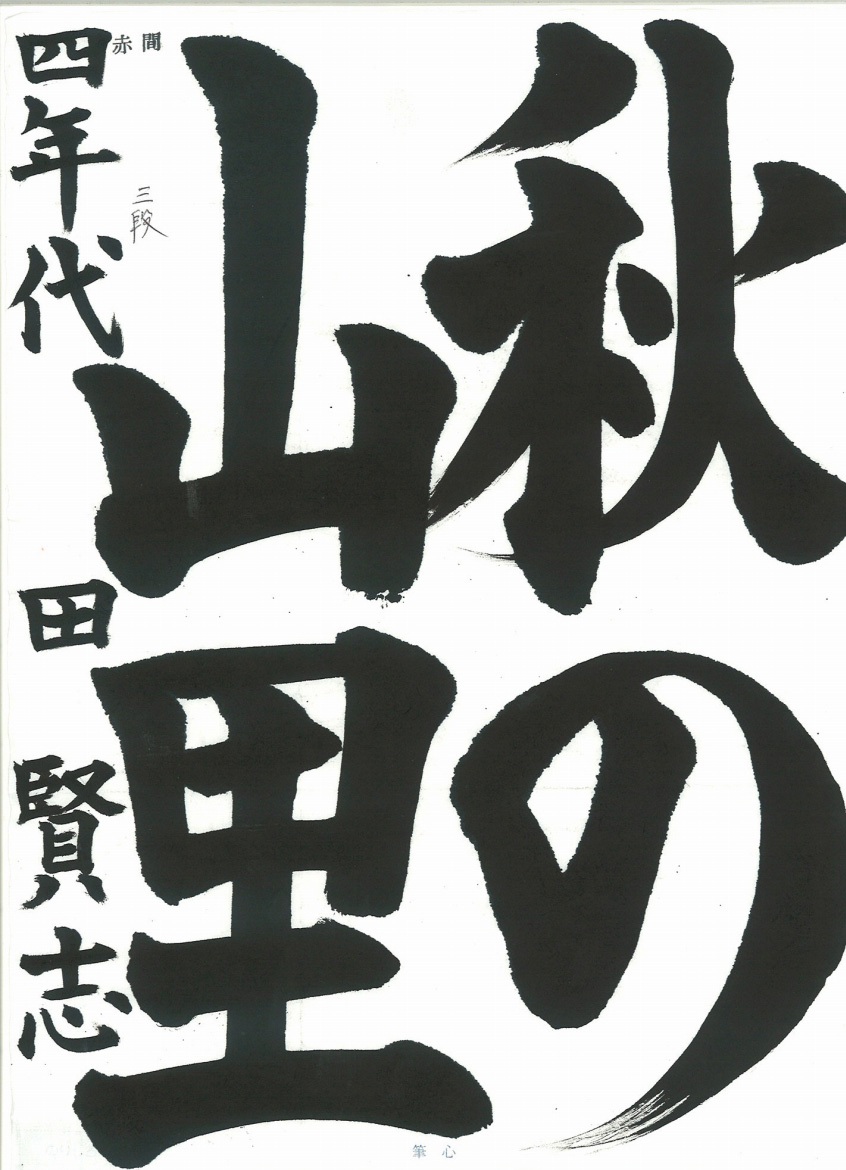 秋の
山里
間赤
三段
四年代田賢志
心筆